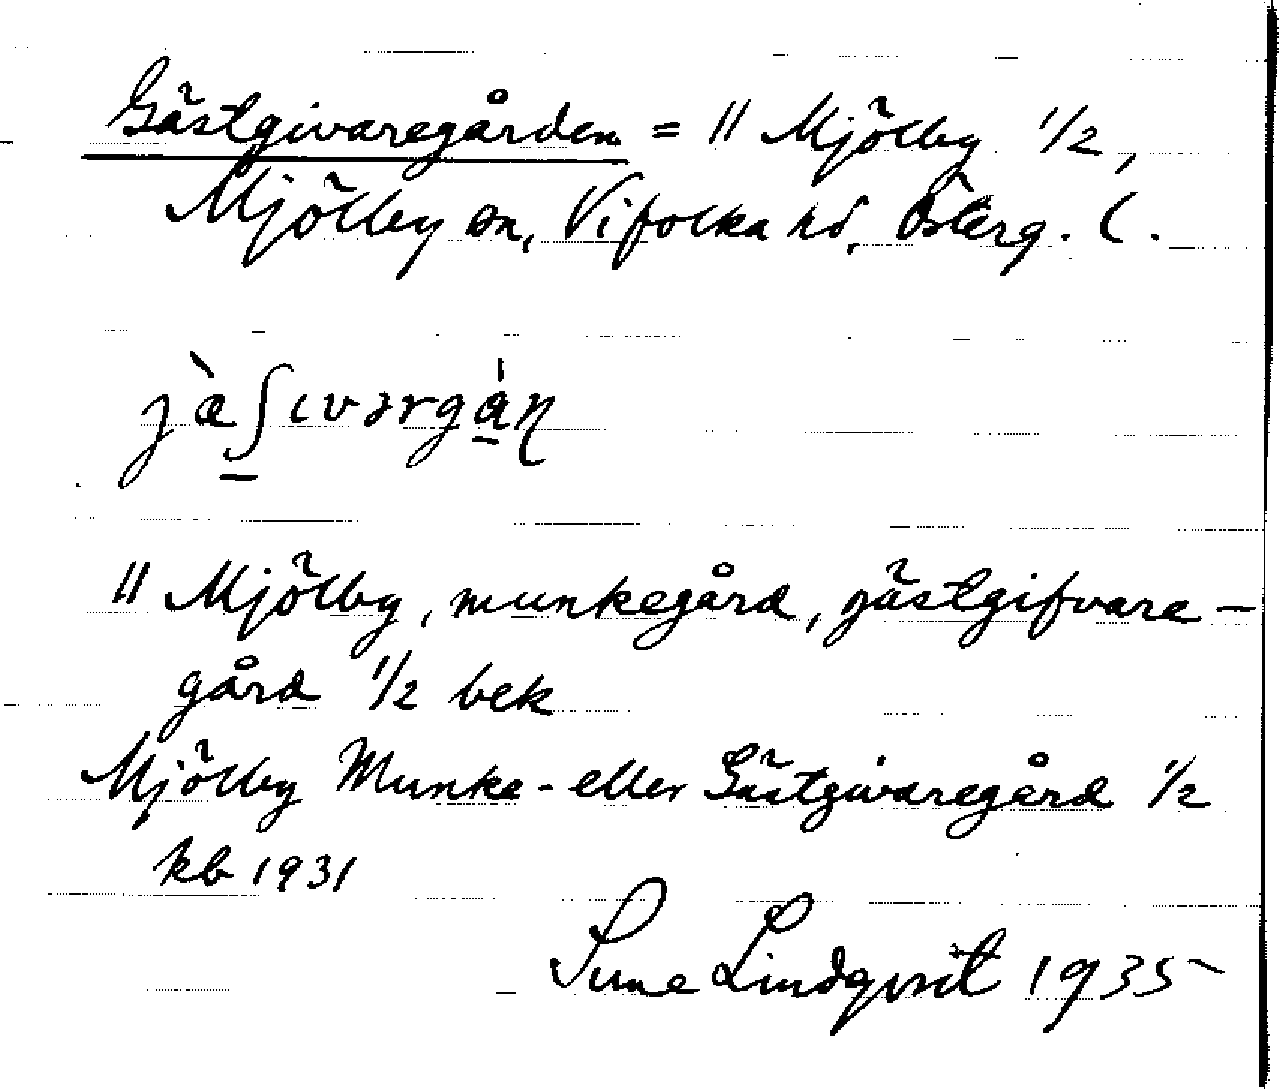 Gästgivaregården = 11 Mjölby 1/2,
Mjölby sn, Vifolka hd, Österg. l.
jæ̀ʃɩvərgán
11 Mjölby, munkegård, gästgifvare-
gård 1/2 bek
Mjölby Munke- eller Gästgivaregård 1/2
kb 1931
Sune Lindqvist 1935